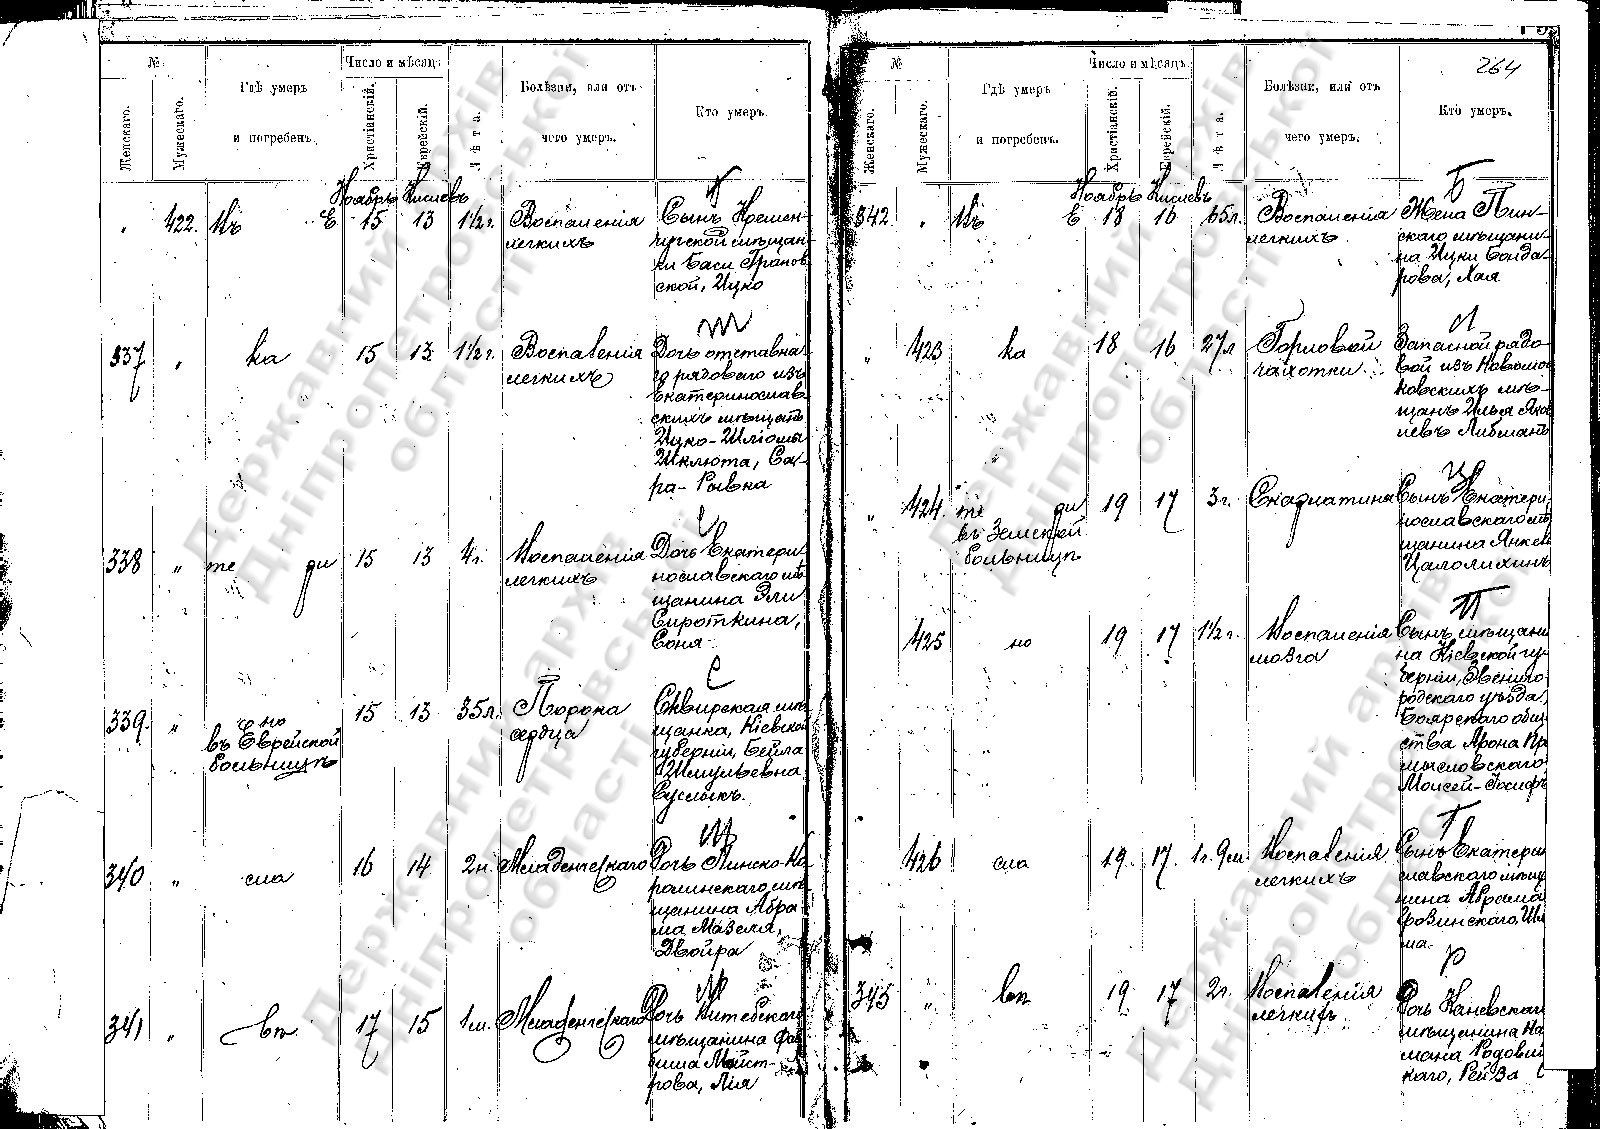 №
Женскаго.
Мужескаго.
Гдѣ умеръ
и погребенъ.
Число и мѣсяцъ
Христіанскій.
Еврейскій.
Лѣта.
Болѣзни, или отъ
чего умеръ.
Кто умеръ.
Ноябрь Кислевъ
422. Въ Е 15 13 1½ г.
Воспаленія
легкихъ
Сынъ Кремен-
чугской мѣщан-
ки Баси Гранов
ской, Ицко
337 " ка 15 13 1½ г.
Воспаленія
легкихъ
Дочь отставна
го рядоваго изъ
Екатеринослав
скихъ мѣщанъ
Ицко-Шліомы
Шклюта, Са-
ра-Рывка
338 " те ри 15 13 4 г.
Воспаленія
легкихъ
Дочь Екатери
нославскаго мѣ
щанина Эли
Сироткина,
Соня
339. " но
въ Еврейской
больницѣ
15 13 35 л.
Порока
сердца
Сквирская мѣ
щанка, Кіевской
губерніи, Бейла
Шмульевна
Суслыкъ.
340 " сла 16 14 2 н.
Младенческаго
Дочь Пинско-Ка
ролинскаго мѣ
щанина Абра
ма Мазеля,
Двойра
341 " вѣ 17 15 1 м.
Младенческаго
Дочь Витебскаго
мѣщанина Фай
биша Мант-
рова, Лія
264
№
Женскаго.
Мужескаго.
Гдѣ умеръ
и погребенъ.
Число и мѣсяцъ
Христіанскій.
Еврейскій.
Лѣта.
Болѣзни, или отъ
чего умеръ.
Кто умеръ.
Ноябрь Кислевъ
Б
342 " Въ Е 18 16 65 л.
Воспаленія
легкихъ
Жена Пин-
скаго мѣщани-
на Ицки Бонда-
рова, Хая
Л
" 423 ка 18 16 27 л
Горловой
чахотки
Запасной рядо
вой изъ Новомос
ковскихъ мѣ-
щанъ Илья Яков
левъ Либманъ
Ц
" 424. те ри
въ Земской
больницѣ
19 17 3 г.
Скарлатина
Сынъ Екатери
нославскаго мѣ
щанина Янкеля
Цалолихинъ
П
425 но 19 17 1½ г.
Воспаленія
мозга
Сынъ мѣщани
на Кіевской гу-
берніи, Звениго
родскаго уѣзда,
Боярскаго обще
ства Арона Пр
мысловскаго
Моисей-Іосифъ
Г
426 сла 19. 17. 1 г. 9 м.
Воспаленія
легкихъ
Сынъ Екатерин
славскаго мѣщ
нина Абрама
Грозинскаго, Шл
ма.
Р
343 " вѣ 19 17 2 г.
Воспаленія
легкихъ
Дочь Каневскаго
мѣщанина На
мана Родовин
каго, Рейза
Державний архів
Дніпропетровської
області